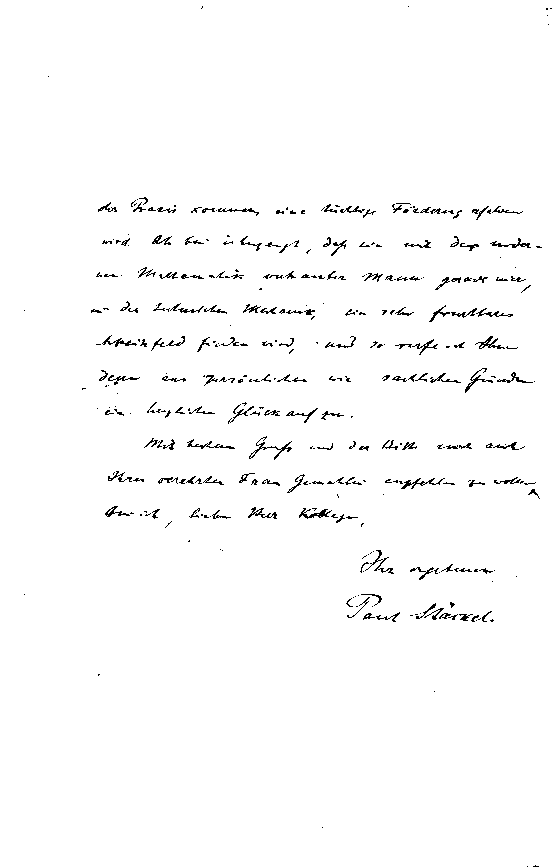 der Praxis kommen, eine tüchtige Förderung erfahren
wird. Ich bin überzeugt, daß ein mit der moder-
nen Mathematik vertrauter Mann gerade hier,
in der technischen Mechanik, ein sehr fruchtbares
Arbeitsfeld finden wird, und so rufe ich Ihnen
denn aus persönlichen wie sachlichen Gründen
ein herzliches Glückauf zu.
Mit bestem Gruß und der Bitte mich auch
Ihrer verehrten Frau Gemahlin empfehlen zu wollen
bin ich, lieber Herr Kollege,
Ihr ergebener
Paul Stäckel.